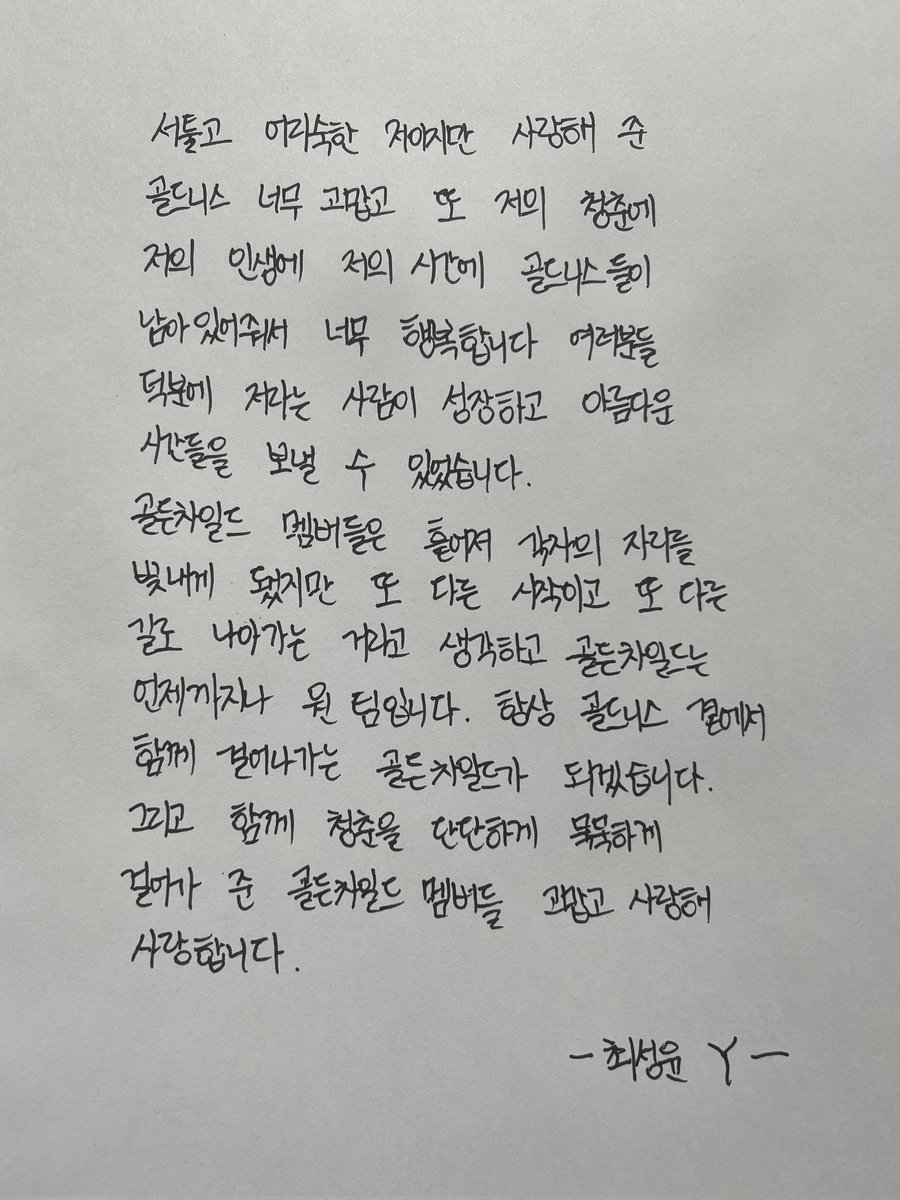 서툴고 어리숙한 저이지만 사랑해 준
골드니스 너무 고맙고 또 저의 청춘에
저의 인생에 저의 시간에 골드니스들이
남아있어줘서 너무 행복합니다 여러분들
덕분에 저라는 사람이 성장하고 아름다운
시간들을 보낼 수 있었습니다.
골든차일드 멤버들은 흩어져 각자의 자리를
빛내게 됐지만 또 다른 시작이고 또 다른
길로 나아가는 거라고 생각하고 골든차일드는
언제까지나 원 팀입니다. 항상 골드니스 곁에서
함께 걸어나가는 골든차일드가 되겠습니다.
그리고 함께 청춘을 단단하게 묵묵하게
걸어가 준 골든차일드 멤버들 고맙고 사랑해
사랑합니다.
- 최성윤 Y -